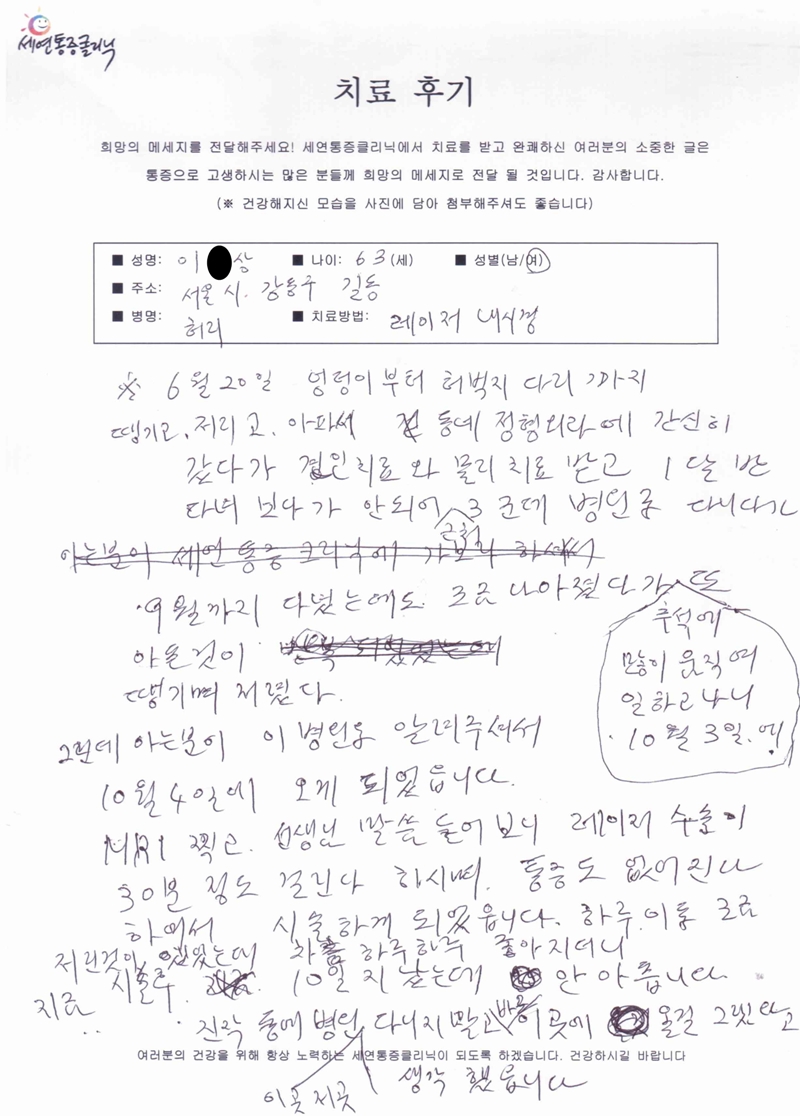 세연통증클리닉
치료 후기
희망의 메세지를 전달해주세요! 세연통증클리닉에서 치료를 받고 완쾌하신 여러분의 소중한 글은
통증으로 고생하시는 많은 분들께 희망의 메세지로 전달 될 것입니다. 감사합니다.
(※ 건강해지신 모습을 사진에 담아 첨부해주셔도 좋습니다)
■ 성명: 이 상 ■ 나이: 63(세) ■ 성별(남/여)
■ 주소: 서울시. 강동구 길동
■ 병명: 허리 ■ 치료방법: 레이저 내시경
※ 6월 20일 엉덩이부터 허벅지 다리까지
땡기고, 저리고, 아파서 동네 정형외과에 간신히
갔다가 치료와 물리치료 받고 1달 반
다녀 보다가 안되어 3군데 병원을 다니다가
근처
아는분이 세연통증크리닉에 가보라 하셔서
9월까지 다녔는데도 조금 나아졌다가 또
추석에
많이 움직여
일하고 나니
10월 3일.에
아픈것이
땡기며 저렸다.
그런데 아는분이 이 병원을 알려주셔서
10월 4일에 오게 되었읍니다.
MRI 찍고. 선생님 말씀 들어보니 레이저 수술이
30분 정도 걸린다 하시며. 통증도 없어진다
하여서 시술하게 되었읍니다. 하루.이틀 조금
저린것이 있었는데 차츰 하루하루 좋아지더니
지금 시술후. 10일 지났는데 안 아픕니다
진작 동네병원 다니지 말고 바로 이곳에 올걸 그랬다고
이곳저곳
생각 했읍니다
여러분의 건강을 위해 항상 노력하는 세연통증클리닉이 되도록 하겠습니다. 건강하시길 바랍니다